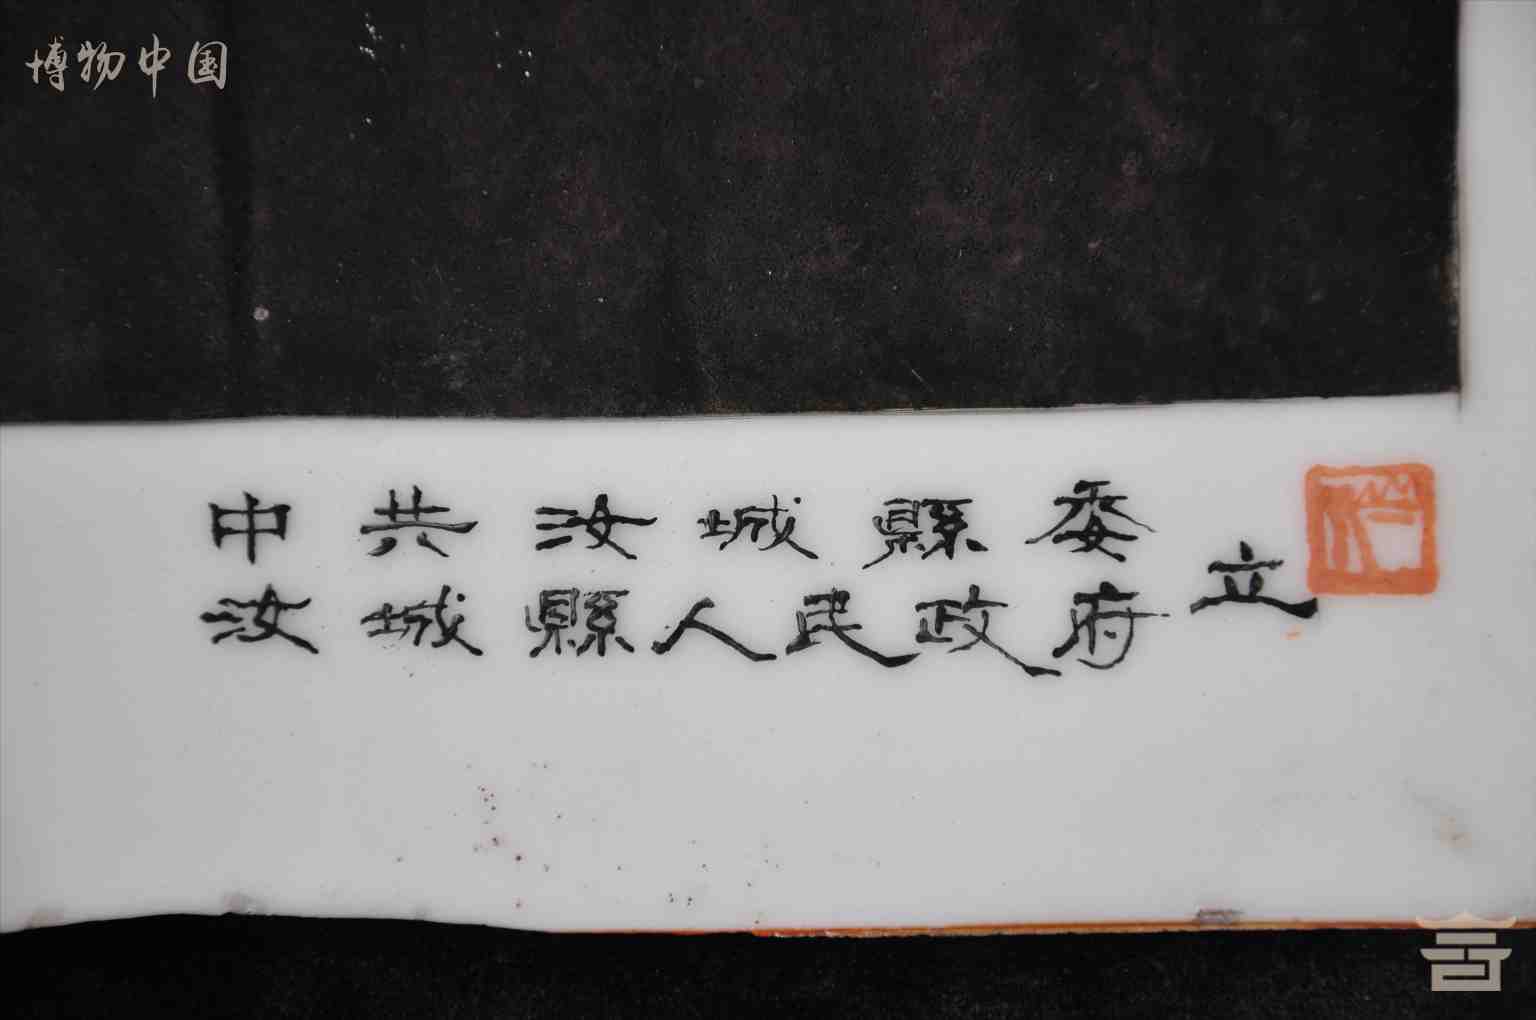 博物中国
中共汝城縣委
汝城縣人民政府
立